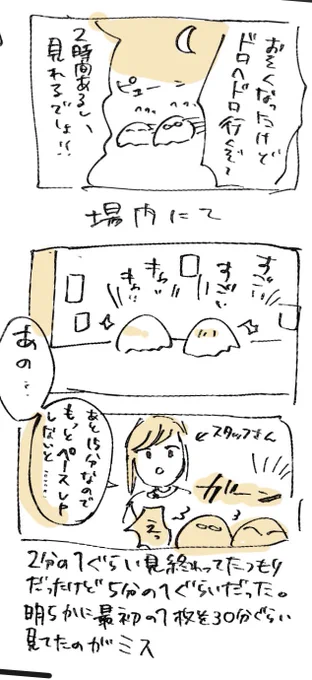 おそくなったけど
ドロヘドロ行くぞ〜
2時間あるし、
見れるでしょ!!
ピューン
場内にて
すごい
すごい
きれい
きれい
あの…
あと15分なので
もっとペースUP
しないと……
←スタッフさん
ガーン
えっ
2分の1ぐらい見終わってたつもり
だったけど5分の1ぐらいだった。
明らかに最初の1枚を30分ぐらい
見てたのがミス